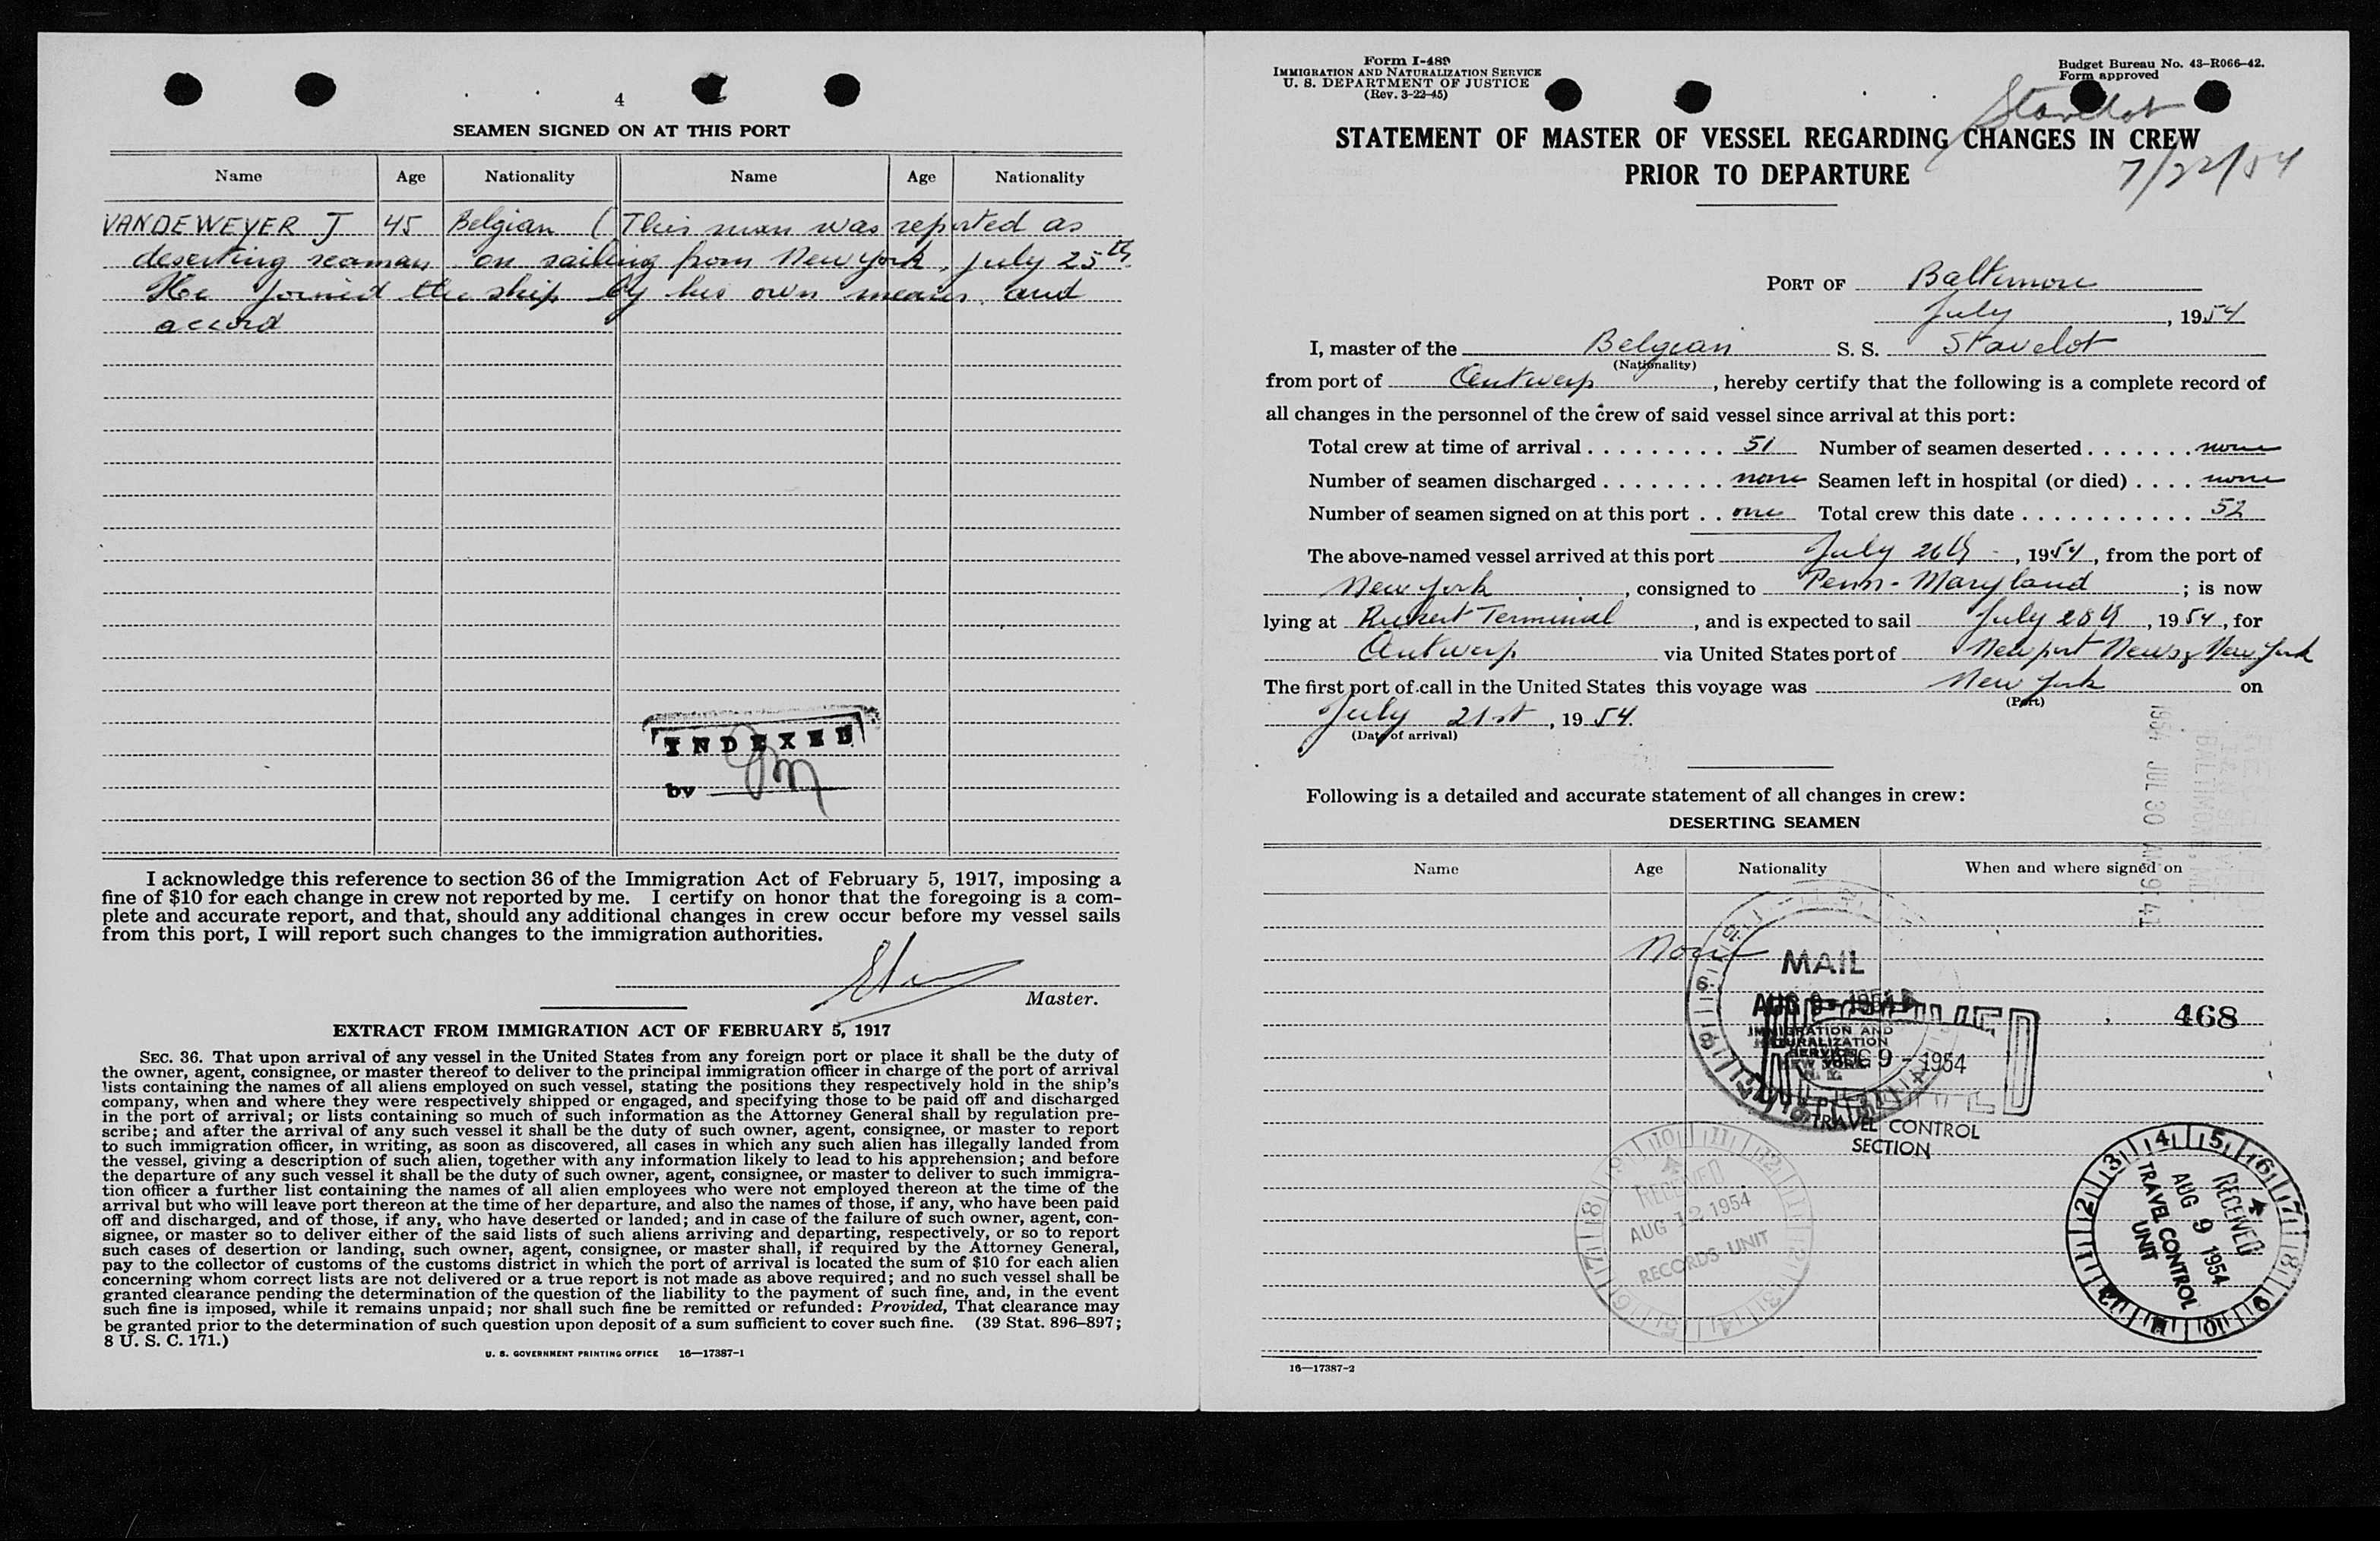 4
SEAMEN SIGNED ON AT THIS PORT
Name Age Nationality Name Age Nationality
VANDEWEYER J 45 Belgian ( This man was reported as
deserting seaman on sailing from New york, July 25th
He joined the ship by his own means and
accord
INDEXED
by
I acknowledge this reference to section 36 of the Immigration Act of February 5, 1917, imposing a
fine of $10 for each change in crew not reported by me. I certify on honor that the foregoing is a com-
plete and accurate report, and that, should any additional changes in crew occur before my vessel sails
from this port, I will report such changes to the immigration authorities.
Master.
EXTRACT FROM IMMIGRATION ACT OF FEBRUARY 5, 1917
SEC. 36. That upon arrival of any vessel in the United States from any foreign port or place it shall be the duty of
the owner, agent, consignee, or master thereof to deliver to the principal immigration officer in charge of the port of arrival
lists containing the names of all aliens employed on such vessel, stating the positions they respectively hold in the ship's
company, when and where they were respectively shipped or engaged, and specifying those to be paid off and discharged
in the port of arrival; or lists containing so much of such information as the Attorney General shall by regulation pre-
scribe; and after the arrival of any such vessel it shall be the duty of such owner, agent, consignee, or master to report
to such immigration officer, in writing, as soon as discovered, all cases in which any such alien has illegally landed from
the vessel, giving a description of such alien, together with any information likely to lead to his apprehension; and before
the departure of any such vessel it shall be the duty of such owner, agent, consignee, or master to deliver to such immigra-
tion officer a further list containing the names of all alien employees who were not employed thereon at the time of the
arrival but who will leave port thereon at the time of her departure, and also the names of those, if any, who have been paid
off and discharged, and of those, if any, who have deserted or landed; and in case of the failure of such owner, agent, con-
signee, or master so to deliver either of the said lists of such aliens arriving and departing, respectively, or so to report
such cases of desertion or landing, such owner, agent, consignee, or master shall, if required by the Attorney General,
pay to the collector of customs of the customs district in which the port of arrival is located the sum of $10 for each alien
concerning whom correct lists are not delivered or a true report is not made as above required; and no such vessel shall be
granted clearance pending the determination of the question of the liability to the payment of such fine, and, in the event
such fine is imposed, while it remains unpaid; nor shall such fine be remitted or refunded: Provided, That clearance may
be granted prior to the determination of such question upon deposit of a sum sufficient to cover such fine. (39 Stat. 896-897;
8 U. S. C. 171.)
U. S. GOVERNMENT PRINTING OFFICE 16—17387-1
Form I-489
IMMIGRATION AND NATURALIZATION SERVICE
U. S. DEPARTMENT OF JUSTICE
(Rev. 3-22-45)
Budget Bureau No. 43-R066-42.
Form approved
Stavelot
7/22/54
STATEMENT OF MASTER OF VESSEL REGARDING CHANGES IN CREW
PRIOR TO DEPARTURE
PORT OF Baltimore
July, 1954
I, master of the Belgian S. S. Stavelot
(Nationality)
from port of Antwerp, hereby certify that the following is a complete record of
all changes in the personnel of the crew of said vessel since arrival at this port:
Total crew at time of arrival 51 Number of seamen deserted none
Number of seamen discharged none Seamen left in hospital (or died) none
Number of seamen signed on at this port one Total crew this date 52
The above-named vessel arrived at this port July 26th, 1954, from the port of
New York, consigned to Penn-Maryland; is now
lying at Rukert Terminal, and is expected to sail July 28th, 1954, for
Antwerp via United States port of Newport News & New York
The first port of call in the United States this voyage was New York on
(Port)
July 21st, 1954.
(Date of arrival)
Following is a detailed and accurate statement of all changes in crew:
DESERTING SEAMEN
Name Age Nationality When and where signed on
None
1954 JUL 30 AM 9:41
BALTIMORE, MD.
MAIL
AUG 9 - 1954
IMMIGRATION AND
NATURALIZATION
SERVICE
NEW YORK
N. Y.
AUG 9 - 1954
TRAVEL CONTROL
SECTION
468
RECEIVED
AUG 12 1954
RECORDS UNIT
RECEIVED
AUG 9 1954
TRAVEL CONTROL
UNIT
16—17387-2